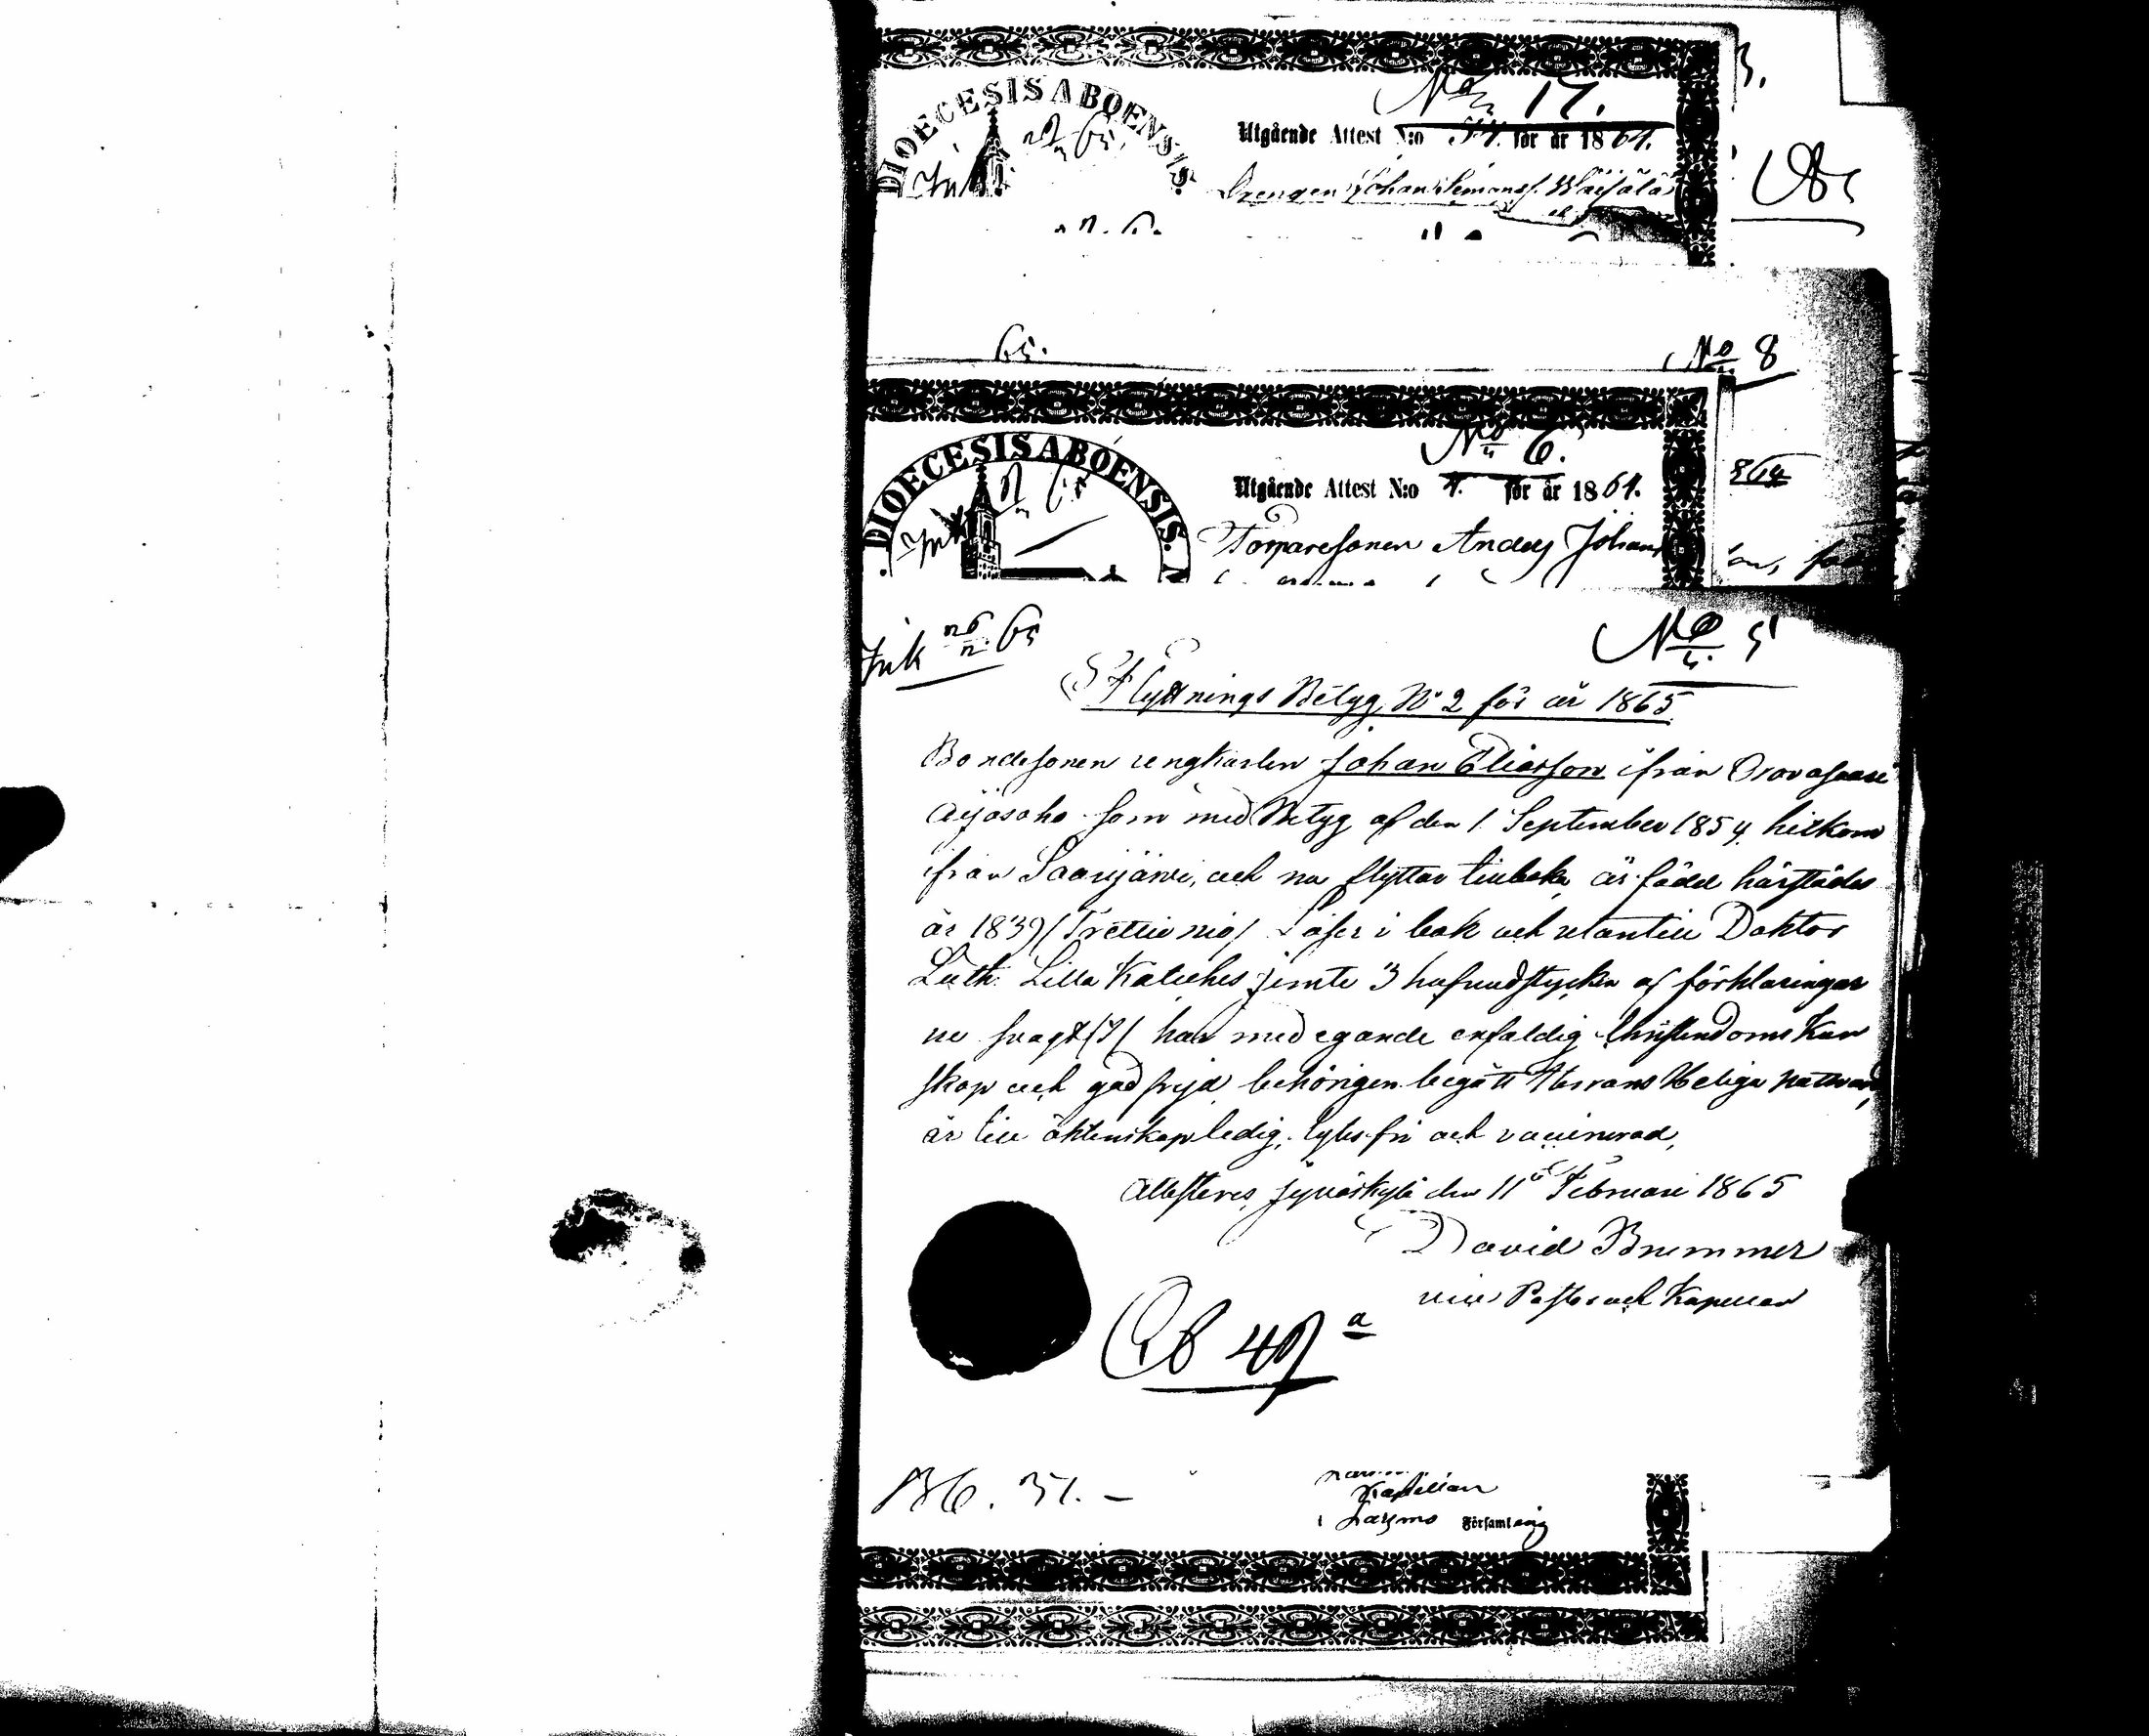 DIOECESIS ABOENSIS.
No 17.
Utgående Attest N:o 34. för år 1864.
Drengen Johan Simonss.
65.
No 8
DIOECESIS ABOENSIS.
No 6.
Utgående Attest N:o 4. för år 1864.
Torparesonen Anders Johans
864
Ink 65
No 5
Flyttnings Betyg No 2 för år 1865
Bondesonen rengkarlen Johan Eliasson ifrån Oravasaari
Äijäsaho som med Betyg af den 1 September 1854 hitkom
ifrån Saarijärvi, och nu flyttar tillbaka är född härstädes
år 1839 (Trettio nio) Läser i bok och utantill Doktor
Luth. Lilla Kateches jemte 3 hufvudstycken af förklaringar
ne svagt har med egande enfaldig Christendoms Kun
skap och god frejd behörigen begått Herrans Heliga nattvard,
är till äktenskap ledig, lytesfri och vaccinerad,
Attesteres, Jyväskylä den 11 Februari 1865
David Brummer
vice Pastor och Kapellan
Kapellan
i Larsmo Församling